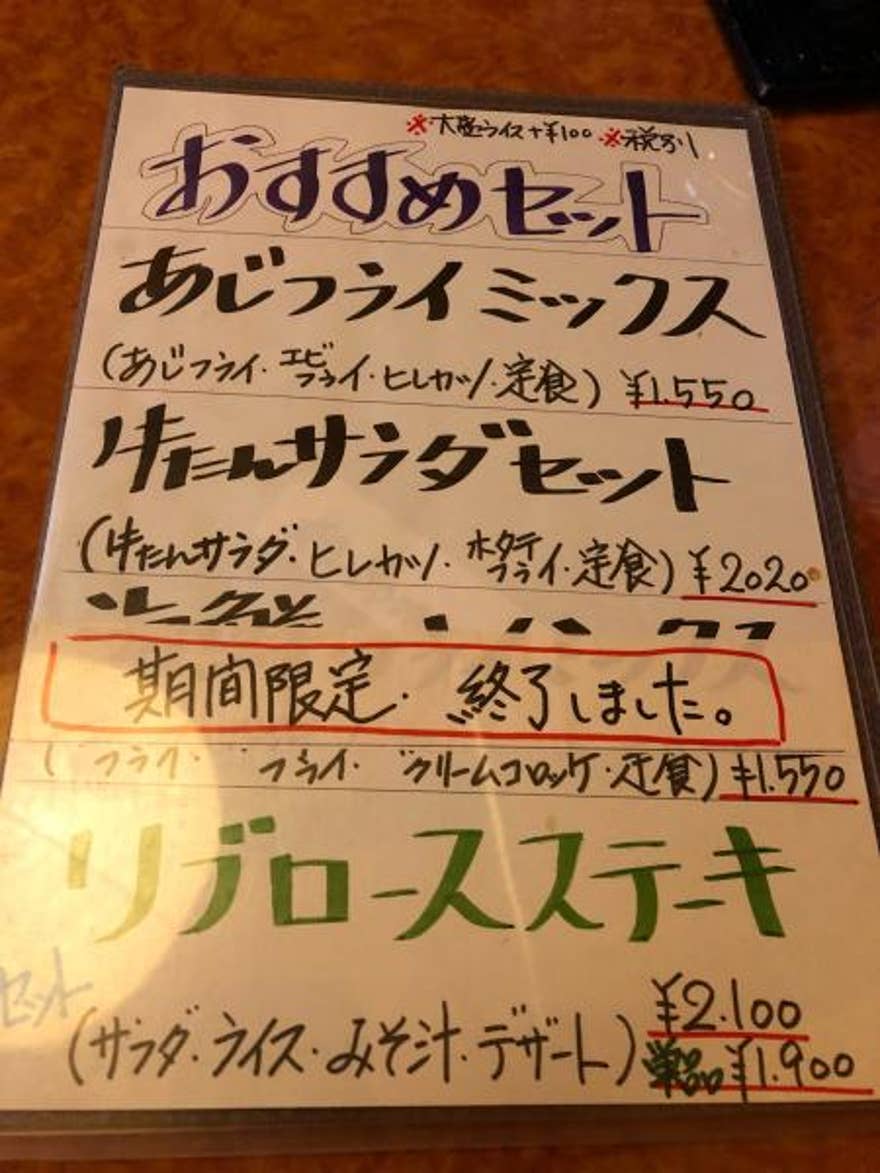 ※大盛ライス+¥100 ※税別
おすすめセット
あじフライミックス
(あじフライ・エビフライ・ヒレカツ・定食) ¥1.550
牛たんサラダセット
(牛たんサラダ・ヒレカツ・ホタテフライ・定食) ¥2020
期間限定・終了しました。
フライ・フライ・クリームコロッケ・定食) ¥1.550
リブロースステーキ
セット
¥2.100
(サラダ・ライス・みそ汁・デザート) 単品 ¥1.900